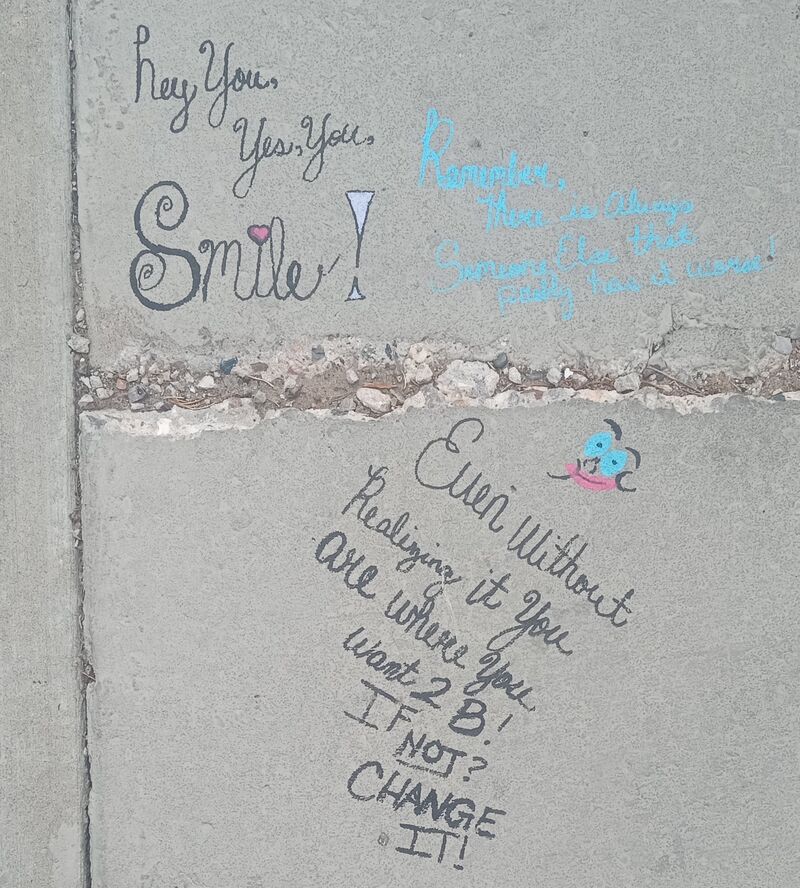 Hey, You,
Yes, You,
Smile!
Remember,
There is Always
Someone Else that
has it worse!
Even Without
Realizing it You
are where You
want 2 B!
IF
NOT?
CHANGE
IT!